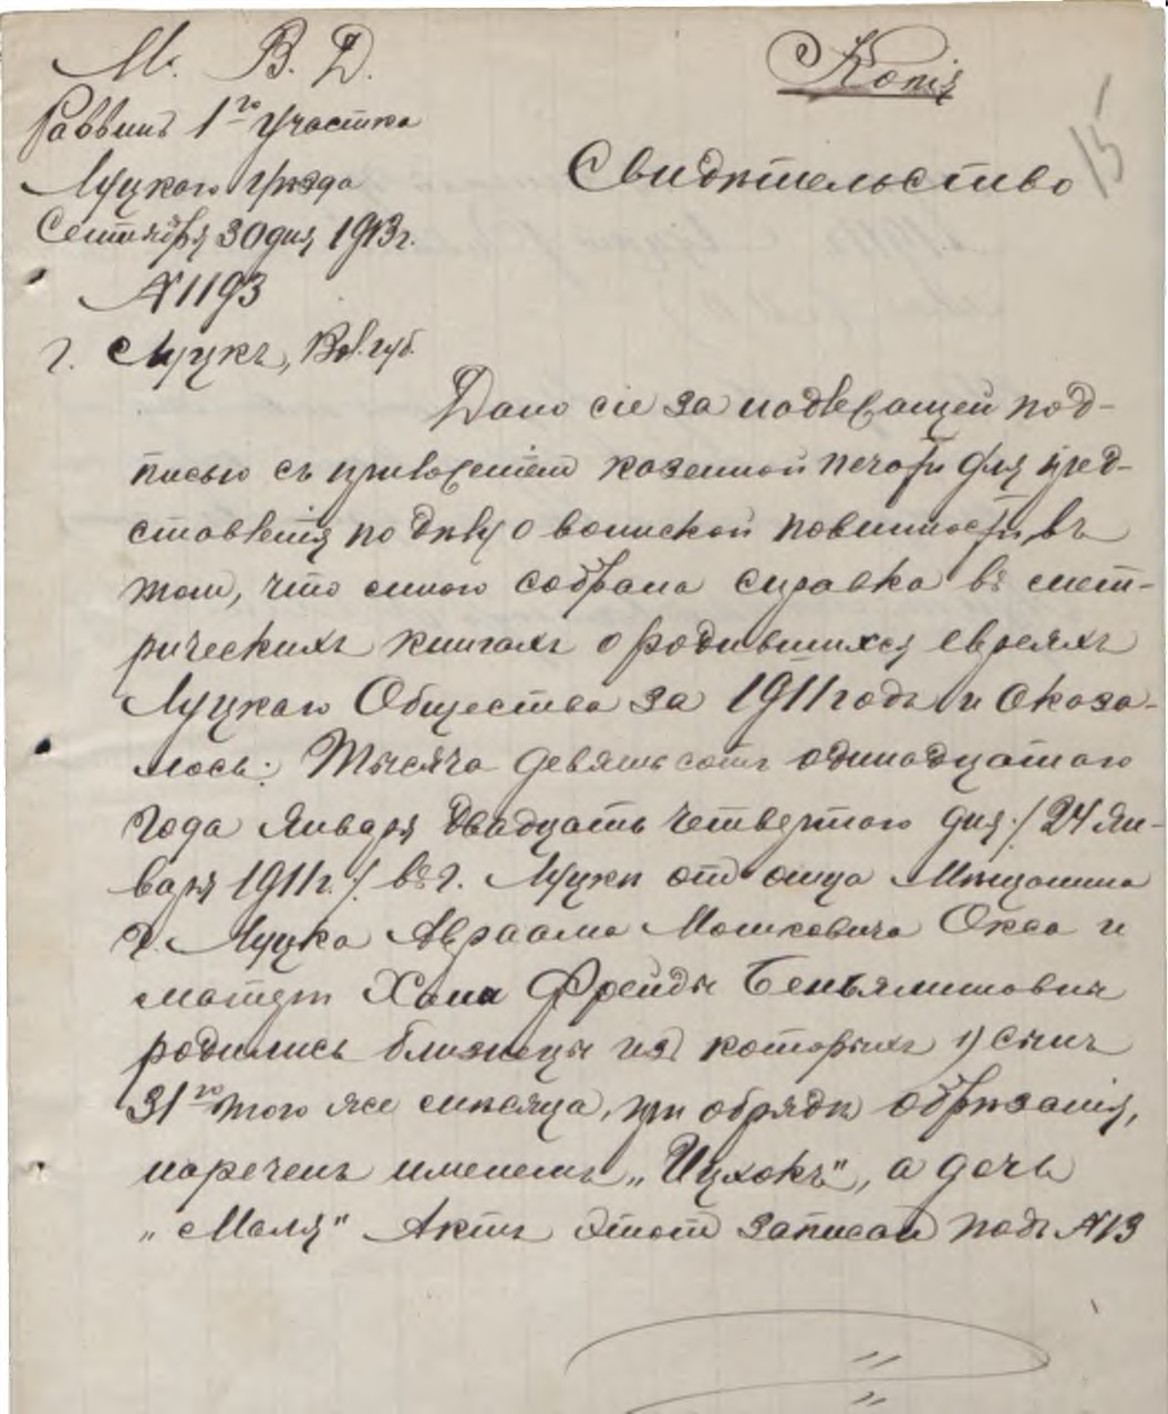 М. В. Д.
Раввинъ 1го Участка
Луцкаго Уѣзда
Сентября 30 дня 1913 г.
№ 1193
г. Луцкъ, Вол. губ.
Копія
15
Свидѣтельство
Дано сіе за надлежащей под-
писью съ приложеніемъ казенной печати для пред-
ставленія по дѣлу о воинской повинности, въ
томъ, что мною собрана справка въ мет-
рическихъ книгахъ о родившихся евреяхъ
Луцкаго Общества за 1911 годъ и оказа-
лось: Тысяча девятьсотъ одинадцатаго
года Января двадцать четвертаго дня /24 Ян-
варя 1911 г./ въ г. Луцкѣ отъ отца Мѣщанина
г. Луцка Авраама Мошковича Окса и
матери Хана Фрейды Беньяминовны
родились близнецы изъ которыхъ 1) сынъ
31го того же мѣсяца, при обрядѣ обрѣзанія,
нареченъ именемъ „Ицхокъ", а дочь
„Маля" Актъ этотъ записанъ подъ №13